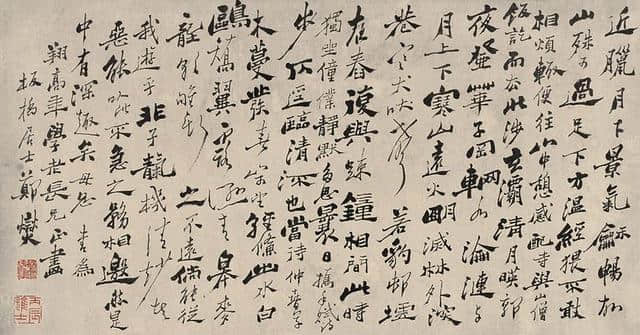 近臘月下景氣龢暢故
山殊可過足下方溫經猥不敢
相煩輒便往山中憩感配寺與山僧
飯訖而去北涉玄灞清月暎郭
夜登華子岡輞水淪漣與
月上下寒山遠火明滅林外深
巷寒犬吠聲若豹邨墟
夜舂復與疎鐘相間此時
獨坐僮僕靜默多思曩日攜手賦詩
步仄逕臨清流也當待仲春草
木蔓發春山可望輕鯈出水白
鷗矯翼露濕青皋麥
隴朝雊斯之不遠倘能從
我遊乎非子天機清妙者
惡能以此不急之務相邀然是
中有深趣矣毋忽 書為
翔高年學老長兄正
板橋居士鄭燮